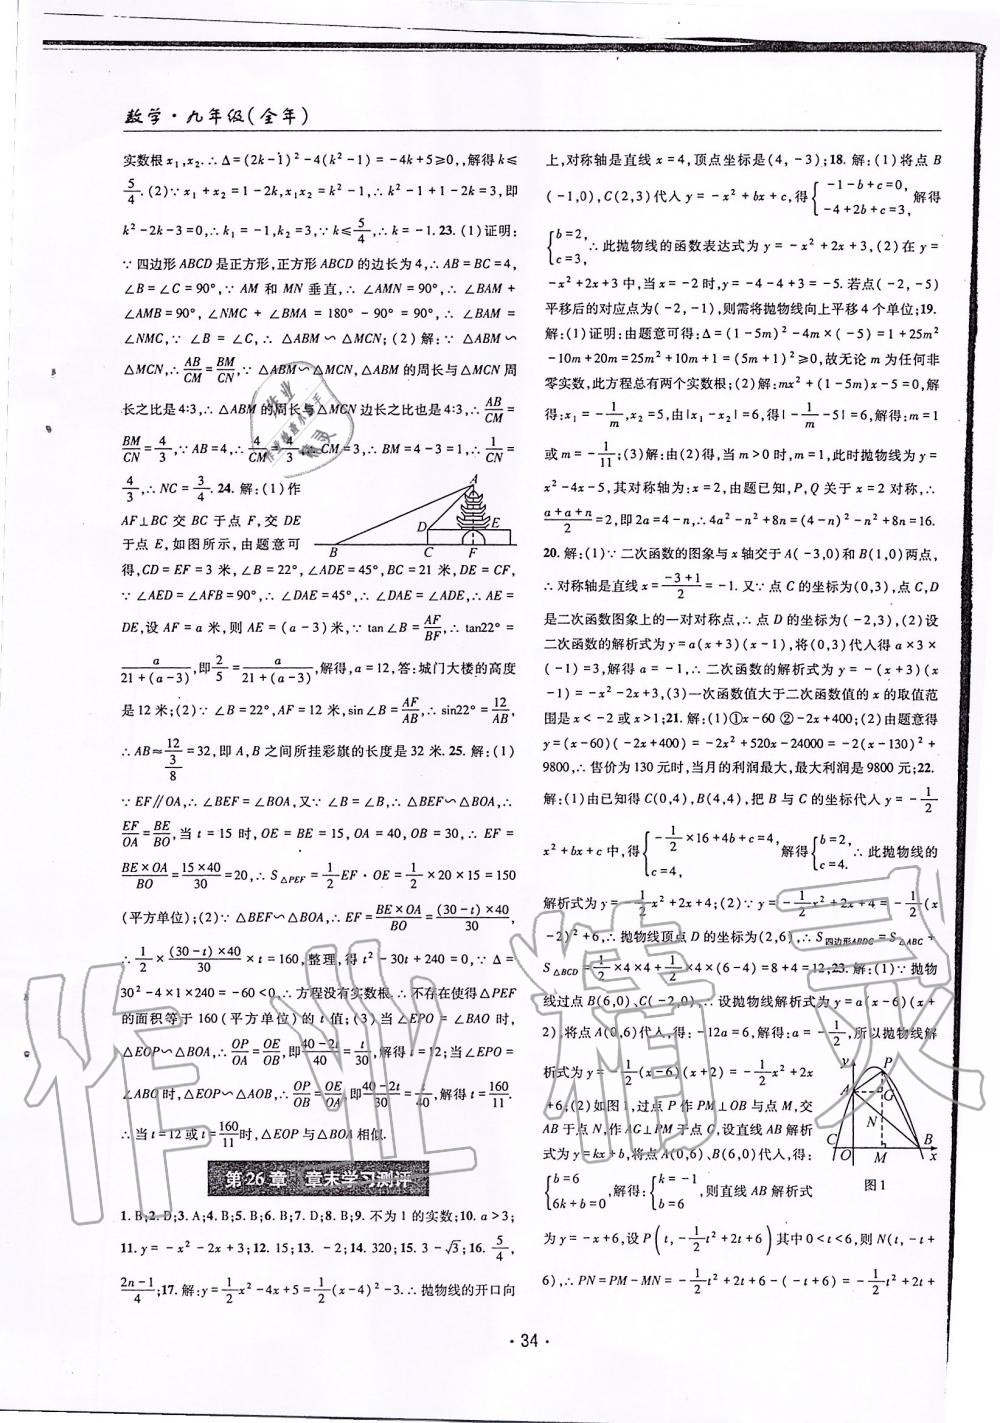 数学·九年级(全年)
实数根 x₁,x₂.∴Δ=(2k-1)²-4(k²-1)=-4k+5≥0,,解得k≤
5/4.(2)∵x₁+x₂=1-2k,x₁x₂=k²-1,∴k²-1+1-2k=3,即
k²-2k-3=0,∴k₁=-1,k₂=3,∵k≤5/4,∴k=-1.23.(1)证明:
∵四边形ABCD是正方形,正方形ABCD的边长为4,∴AB=BC=4,
∠B=∠C=90°,∵AM和MN垂直,∴∠AMN=90°,∴∠BAM+
∠AMB=90°,∠NMC+∠BMA=180°-90°=90°,∴∠BAM=
∠NMC,∵∠B=∠C,∴△ABM∽△MCN;(2)解:∵△ABM∽
△MCN,∴AB/CM=BM/CN,∵△ABM∽△MCN,△ABM的周长与△MCN周
长之比是4:3,∴△ABM的周长与△MCN边长之比也是4:3,∴AB/CM=
BM/CN=4/3,∵AB=4,∴4/CM=4/3,∴CM=3,∴BM=4-3=1,∴1/CN=
4/3,∴NC=3/4.24.解:(1)作
AF⊥BC交BC于点F,交DE
于点E,如图所示,由题意可
得,CD=EF=3米,∠B=22°,∠ADE=45°,BC=21米,DE=CF,
∵∠AED=∠AFB=90°,∴∠DAE=45°,∴∠DAE=∠ADE,∴AE=
DE,设AF=a米,则AE=(a-3)米,∵tan∠B=AF/BF,∴tan22°=
a/21+(a-3),即2/5=a/21+(a-3),解得,a=12,答:城门大楼的高度
是12米;(2)∵∠B=22°,AF=12米,sin∠B=AF/AB,∴sin22°=12/AB,
∴AB≈12/(3/8)=32,即A,B之间所挂彩旗的长度是32米.25.解:(1)
∵EF∥OA,∴∠BEF=∠BOA,又∵∠B=∠B,∴△BEF∽△BOA,∴
EF/OA=BE/BO,当t=15时,OE=BE=15,OA=40,OB=30,∴EF=
BE×OA/BO=15×40/30=20,∴S△PEF=1/2EF·OE=1/2×20×15=150
(平方单位);(2)∵△BEF∽△BOA,∴EF=BE×OA/BO=(30-t)×40/30,
∴1/2×(30-t)×40/30×t=160,整理,得t²-30t+240=0,∵Δ=
30²-4×1×240=-60<0,∴方程没有实数根.∴不存在使得△PEF
的面积等于160(平方单位)的t值;(3)当∠EPO=∠BAO时,
△EOP∽△BOA,∴OP/OA=OE/OB,即40-2t/40=t/30,解得t=12;当∠EPO=
∠ABO时,△EOP∽△AOB,∴OP/OB=OE/OA,即40-2t/30=t/40,解得t=160/11.
∴当t=12或t=160/11时,△EOP与△BOA相似.
第26章 章末学习测评
1.B;2.D;3.A;4.B;5.B;6.B;7.D;8.B;9.不为1的实数;10.a>3;
11.y=-x²-2x+3;12.15;13.-2;14.320;15.3-√3;16.5/4,
2n-1/4;17.解:y=1/2x²-4x+5=1/2(x-4)²-3.∴抛物线的开口向
上,对称轴是直线x=4,顶点坐标是(4,-3);18.解:(1)将点B
(-1,0),C(2,3)代人y=-x²+bx+c,得{-1-b+c=0, -4+2b+c=3,解得
{b=2, c=3,∴此抛物线的函数表达式为y=-x²+2x+3,(2)在y=
-x²+2x+3中,当x=-2时,y=-4-4+3=-5.若点(-2,-5)
平移后的对应点为(-2,-1),则需将抛物线向上平移4个单位;19.
解:(1)证明:由题意可得:Δ=(1-5m)²-4m×(-5)=1+25m²
-10m+20m=25m²+10m+1=(5m+1)²≥0,故无论m为任何非
零实数,此方程总有两个实数根;(2)解:mx²+(1-5m)x-5=0,解
得:x₁=-1/m,x₂=5,由|x₁-x₂|=6,得|-1/m-5|=6,解得:m=1
或m=-1/11;(3)解:由(2)得,当m>0时,m=1,此时抛物线为y=
x²-4x-5,其对称轴为:x=2,由题已知,P,Q关于x=2对称,∴
a+a+n/2=2,即2a=4-n,∴4a²-n²+8n=(4-n)²-n²+8n=16.
20.解:(1)∵二次函数的图象与x轴交于A(-3,0)和B(1,0)两点,
∴对称轴是直线x=-3+1/2=-1.又∵点C的坐标为(0,3),点C,D
是二次函数图象上的一对对称点,∴点D的坐标为(-2,3),(2)设
二次函数的解析式为y=a(x+3)(x-1),将(0,3)代人得a×3×
(-1)=3,解得a=-1,∴二次函数的解析式为y=-(x+3)(x
-1)=-x²-2x+3,(3)一次函数值大于二次函数值的x的取值范
围是x<-2或x>1;21.解:(1)①x-60 ②-2x+400;(2)由题意得
y=(x-60)(-2x+400)=-2x²+520x-24000=-2(x-130)²+
9800,∴售价为130元时,当月的利润最大,最大利润是9800元;22.
解:(1)由已知得C(0,4),B(4,4),把B与C的坐标代人y=-1/2
x²+bx+c中,得{-1/2×16+4b+c=4, c=4,解得{b=2, c=4.∴此抛物线的
解析式为y=-1/2x²+2x+4;(2)∵y=-1/2x²+2x+4=-1/2(x
-2)²+6,∴抛物线顶点D的坐标为(2,6),∴S四边形ABDC=S△ABC+
S△BCD=1/2×4×4+1/2×4×(6-4)=8+4=12;23.解:(1)∵抛物
线过点B(6,0)、C(-2,0),∴设抛物线解析式为y=a(x-6)(x+
2),将点A(0,6)代人,得:-12a=6,解得:a=-1/2,所以抛物线解
析式为y=-1/2(x-6)(x+2)=-1/2x²+2x
+6;(2)如图1,过点P作PM⊥OB与点M,交
AB于点N,作AG⊥PM于点G,设直线AB解析
式为y=kx+b,将点A(0,6)、B(6,0)代人,得:
{b=6 6k+b=0,解得:{k=-1 b=6,则直线AB解析式
为y=-x+6,设P(t,-1/2t²+2t+6)其中0<t<6,则N(t,-t+
6),∴PN=PM-MN=-1/2t²+2t+6-(-t+6)=-1/2t²+2t+
A
D E
B C F
y P
A G
N
C O M B x
图1
·34·
作业精灵